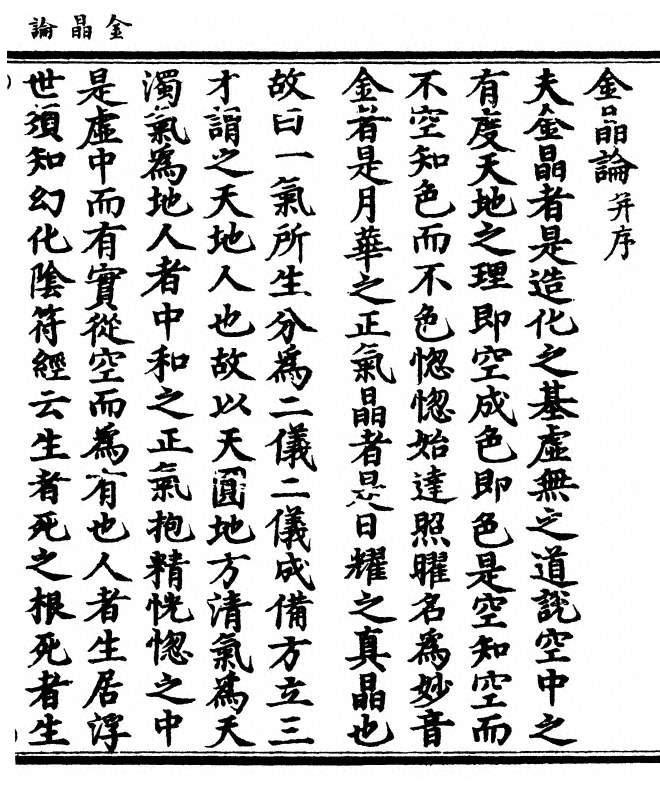 金晶論
金晶論并序
夫金晶者是造化之基虛無之道說空中之
有度天地之理即空成色即色是空知空而
不空知色而不色惚惚始達照曜名為妙音
金者是月華之正氣晶者是日耀之真晶也
故曰一氣所生分為二儀二儀成備方立三
才謂之天地人也故以天圓地方清氣為天
濁氣為地人者中和之正氣抱精恍惚之中
是虛中而有實從空而為有也人者生居浮
世須知幻化陰符經云生者死之根死者生